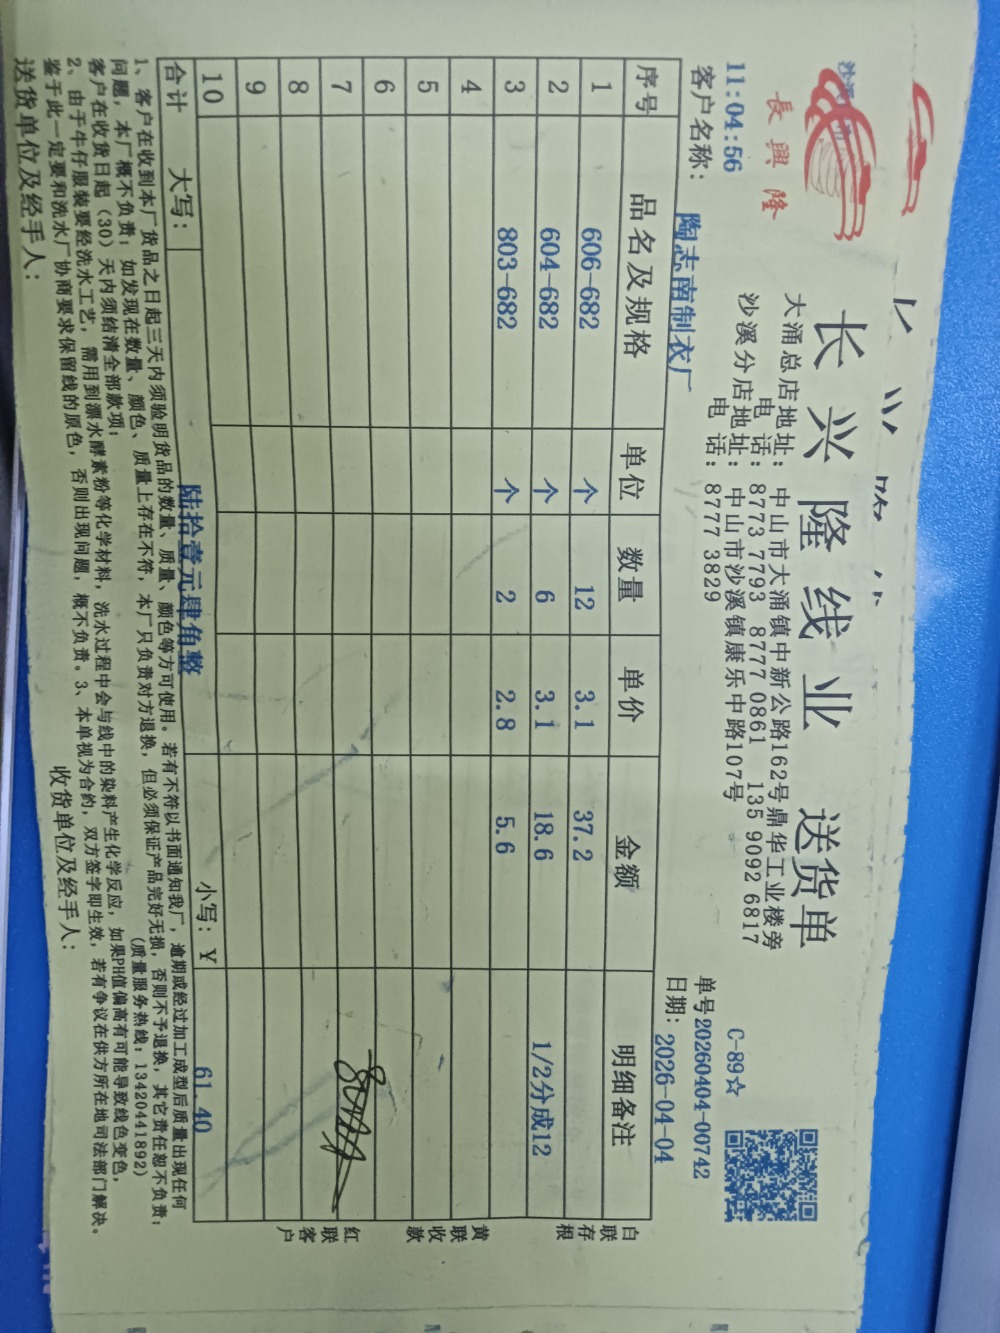 長興隆
长兴隆线业 送货单
大涌总店地址：中山市大涌镇中新公路162号鼎华工业楼旁
电 话：8773 7793 8777 0861 135 9092 6817
沙溪分店地址：中山市沙溪镇康乐中路107号
电 话：8777 3829
C-89☆
11:04:56
单号20260404-00742
客户名称： 陶志南制衣厂
日期：2026-04-04
序号 品名及规格 单位 数量 单价 金额 明细备注
1 606-682 个 12 3.1 37.2
2 604-682 个 6 3.1 18.6 1/2分成12
3 803-682 个 2 2.8 5.6
4
5
6
7
8
9
10
合计 大写： 陆拾壹元肆角整 小写：Y 61.40
白联存根
黄联收款
红联客户
1、客户在收到本厂货品之日起三天内须验明货品的数量、质量、颜色等方可使用。若有不符以书面通知我厂，逾期或经过加工成型后质量出现任何
问题，本厂概不负责；如发现在数量、颜色、质量上存在不符，本厂只负责对方退换，但必须保证产品完好无损，否则不予退换，其它责任恕不负责；
客户在收货日起（30）天内须结清全部款项； (质量服务热线：13420441892)
2、由于牛仔服装要经洗水工艺，需用到漂水酵素粉等化学材料，洗水过程中会与线中的染料产生化学反应，如果PH值偏高有可能导致线色变色，
鉴于此一定要和洗水厂协商要求保留线的原色，否则出现问题，概不负责。3、本单视为合约，双方签字即生效，若有争议在供方所在地司法部门解决。
送货单位及经手人： 收货单位及经手人：